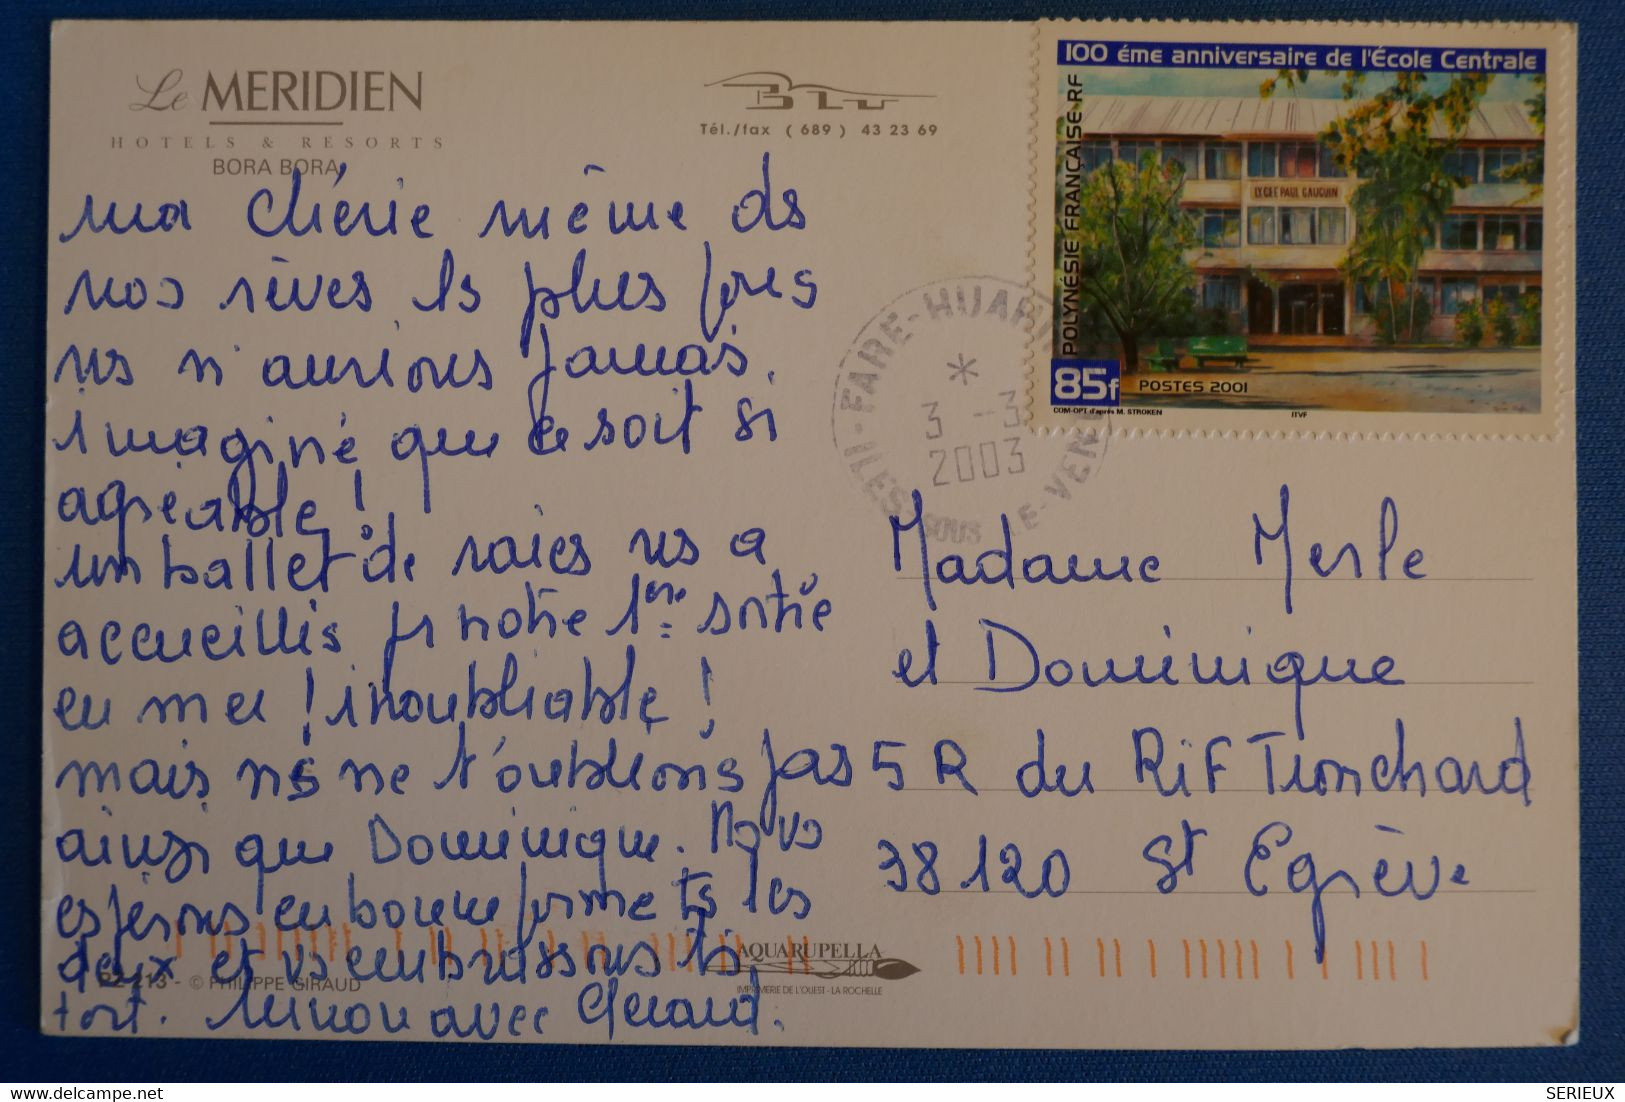 Le MERIDIEN
HOTELS & RESORTS
BORA BORA
BLU
Tél./fax ( 689 ) 43 23 69
100 éme anniversaire de l'École Centrale
POLYNÉSIE FRANÇAISE-RF
LYCEE PAUL GAUGUIN
85f
POSTES 2001
COM-OPT d'après M. STROKEN
ITVF
FARE-HUAHINE
*
3 -3
2003
ILES-SOUS-LE-VENT
ma chérie même ds
nos rêves ls plus fous
ns n'aurions jamais
imaginé que ce soit si
agréable !
un ballet de raies ns a
accueillis pr notre 1ère sortie
en mer ! inoubliable !
mais ns ne t'oublions pas
ainsi que Dominique. Ns vs
espérons en bonne forme ts les
deux et vs embrassons ts
fort. Ninon avec Gérard.
Madame Merle
et Dominique
5 R du Rif Tronchard
38120 St Egrève
PZ 213 - © PHILIPPE GIRAUD
AQUARUPELLA
IMPRIMERIE DE L'OUEST - LA ROCHELLE
SERIEUX